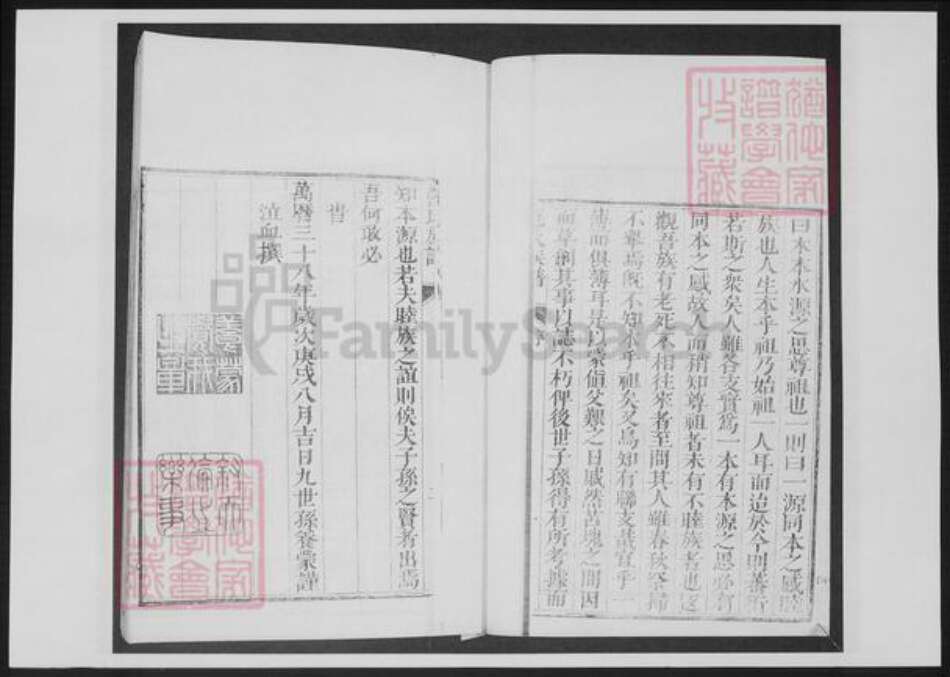 曰木本水源之思尊祖也一則曰一源同本之感睦
族也人生本乎祖乃始祖一人耳而迨於今則蕃衍
若斯之衆矣人雖各支實爲一本有本源之思必有
同本之感故人而稍知尊祖者未有不睦族者也
觀吾族有老死不相往來者至問其人雖春秋祭歸
不舉焉旣不知本乎祖矣又烏知有聯支哉豈乎一
薄而俱薄耳是以蒙偵父艱之日戚然苫塊之間因
而草創其事以誌不朽俾後世子孫得有所考據而
知本源也若夫睦族之誼則俟夫子孫之賢者出焉
吾何敢必
旹
萬曆三十八年歲次庚戌八月吉日九世孫養蒙謹
泣血撰
FamilySearch